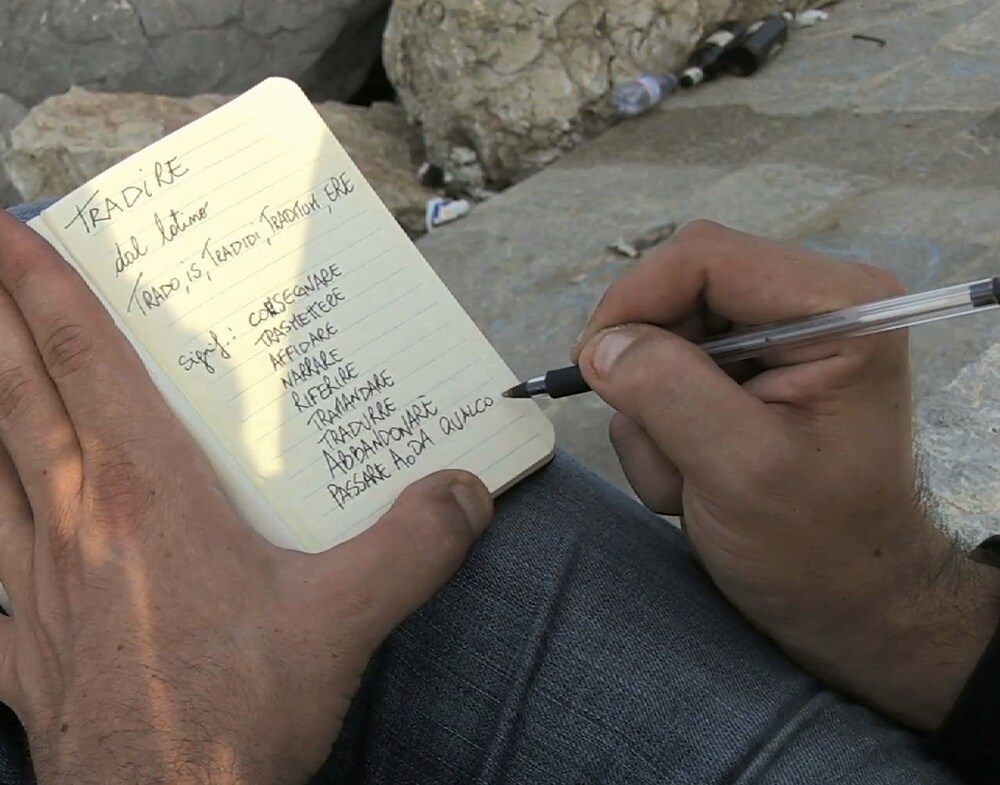 TRADIRE
dal latino
TRADO, IS, TRADIDI, TRADITUM, ERE
signif.: CONSEGNARE
TRASMETTERE
AFFIDARE
NARRARE
RIFERIRE
TRAMANDARE
TRADURRE
ABBANDONARE
PASSARE A O DA QUALCO